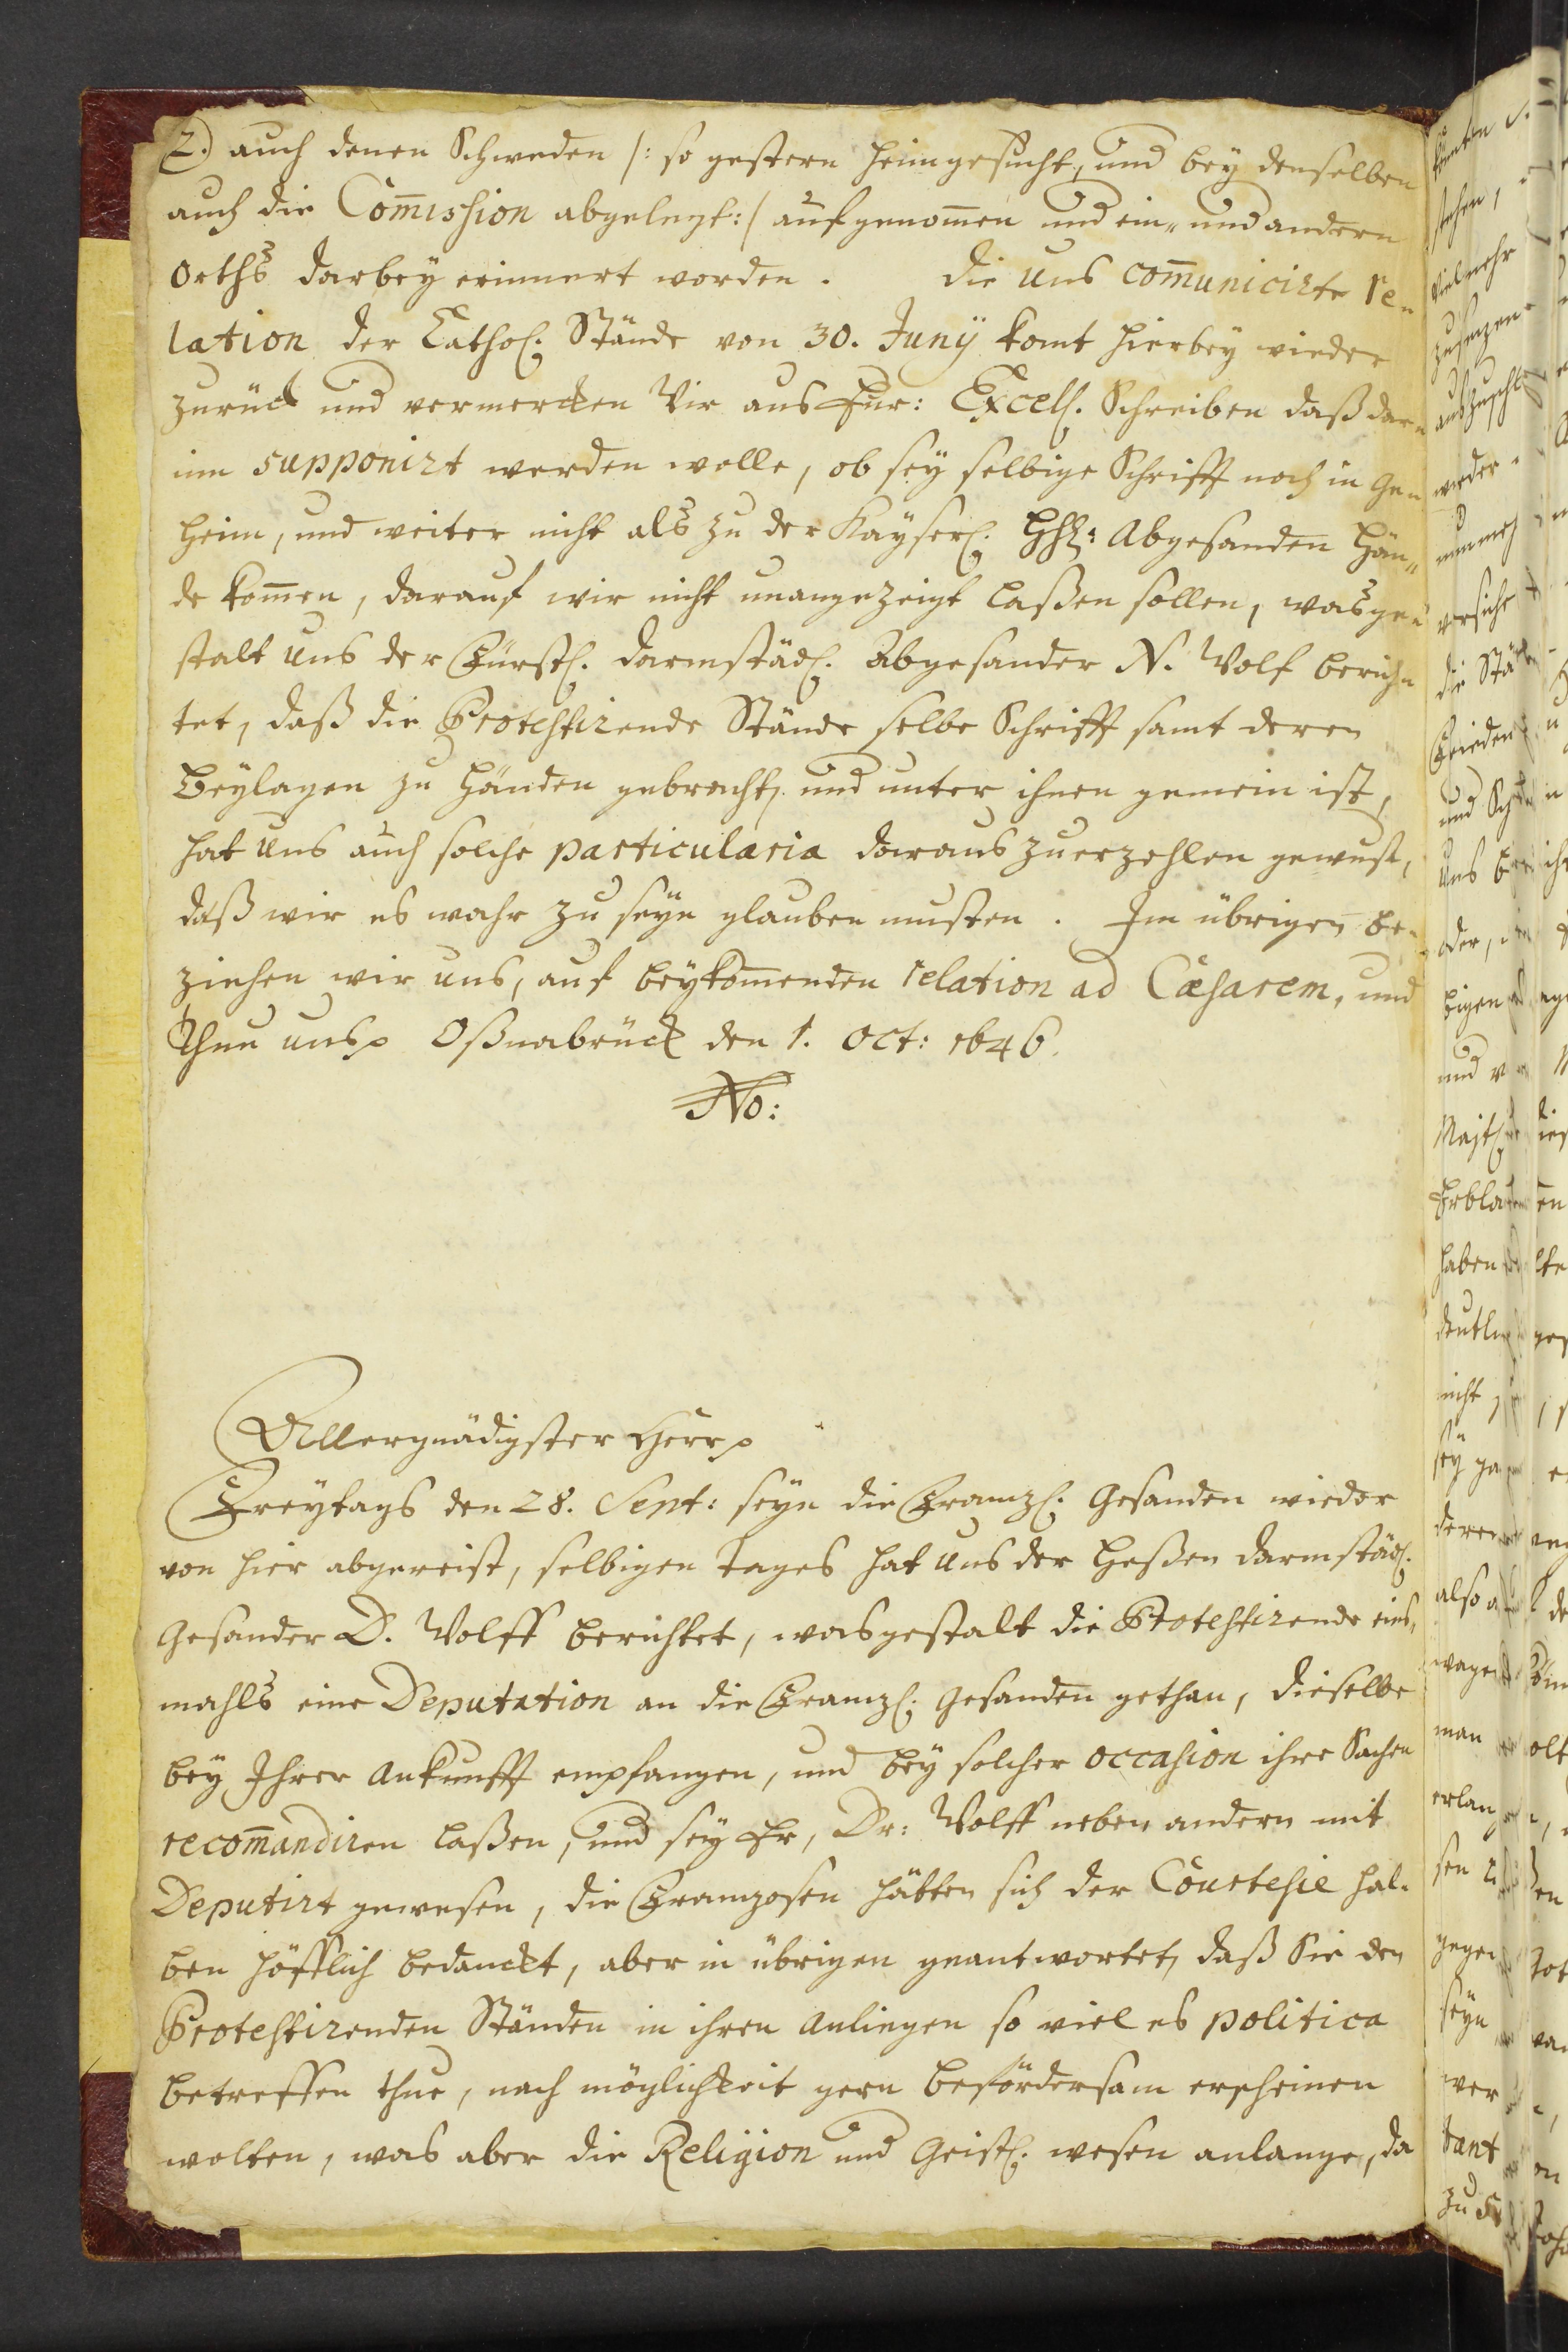 2.) auch denen Schweden /: so gestern heimgesucht, und bey denselben
auch die Com̄ission abgelegt :/ aufgenom̄en und ein„ und andern
Orths darbey erinnert worden. die uns com̄unicirte re„
lation der Cathol. Stände von 30. Junÿ komt hierbey wieder
zurück und vermercken Wir aus Eur: Excell. Schreiben daß dar„
inn supponirt werden wolle, ob sey selbige Schrifft noch in Ge„
heim, und weiter nicht als zu der Kayserl. HH: Abgesanden Hän„
de kom̄en, darauf wir nicht unangezeigt laßen sollen, was ge„
stalt uns der Fürstl. Darmstäd. Abgesander N. Wolf berich„
tet, daß die Protestirende Stände selbe Schrifft samt deren
Beylagen zu Händen gebracht, und unter ihnen gemein ist,
hat uns auch solche particularia daraus zuerzehlen gewust,
daß wir es wahr zu seyn glauben musten. Im übrigen be„
ziehen wir uns, auf beykom̄enden relation ad Cæsarem, und
Thun uns Oßnabrück den 1. Oct: 1646.
No:
Allergnädigster Herr
Freytags den 28. Sept: seyn die Franzl. Gesanden wieder
von hier abgereist, selbigen Tages hat uns der Heßen Darmstäd.
Gesander D. Wolff berichtet, was gestalt die Protestirende eins„
mahls eine Deputation an die Franzl. Gesanden gethan, dieselbe
bey Ihrer Ankunfft empfangen, und bey solcher occasion ihre Sachen
recom̄andiren laßen, und sey Er, Dr: Wolff neben andern mit
Deputirt gewesen, die Franzosen hätten sich der Courtesie hal„
ben höfflich bedanckt, aber in übrigen geantwortet, daß Sie den
Protestirenden Ständen in ihren Anliegen so viel es politica
betreffen thue, nach möglichkeit gern befördersam erscheinen
wolten, was aber die Religion und Geistl. wesen anlange, da